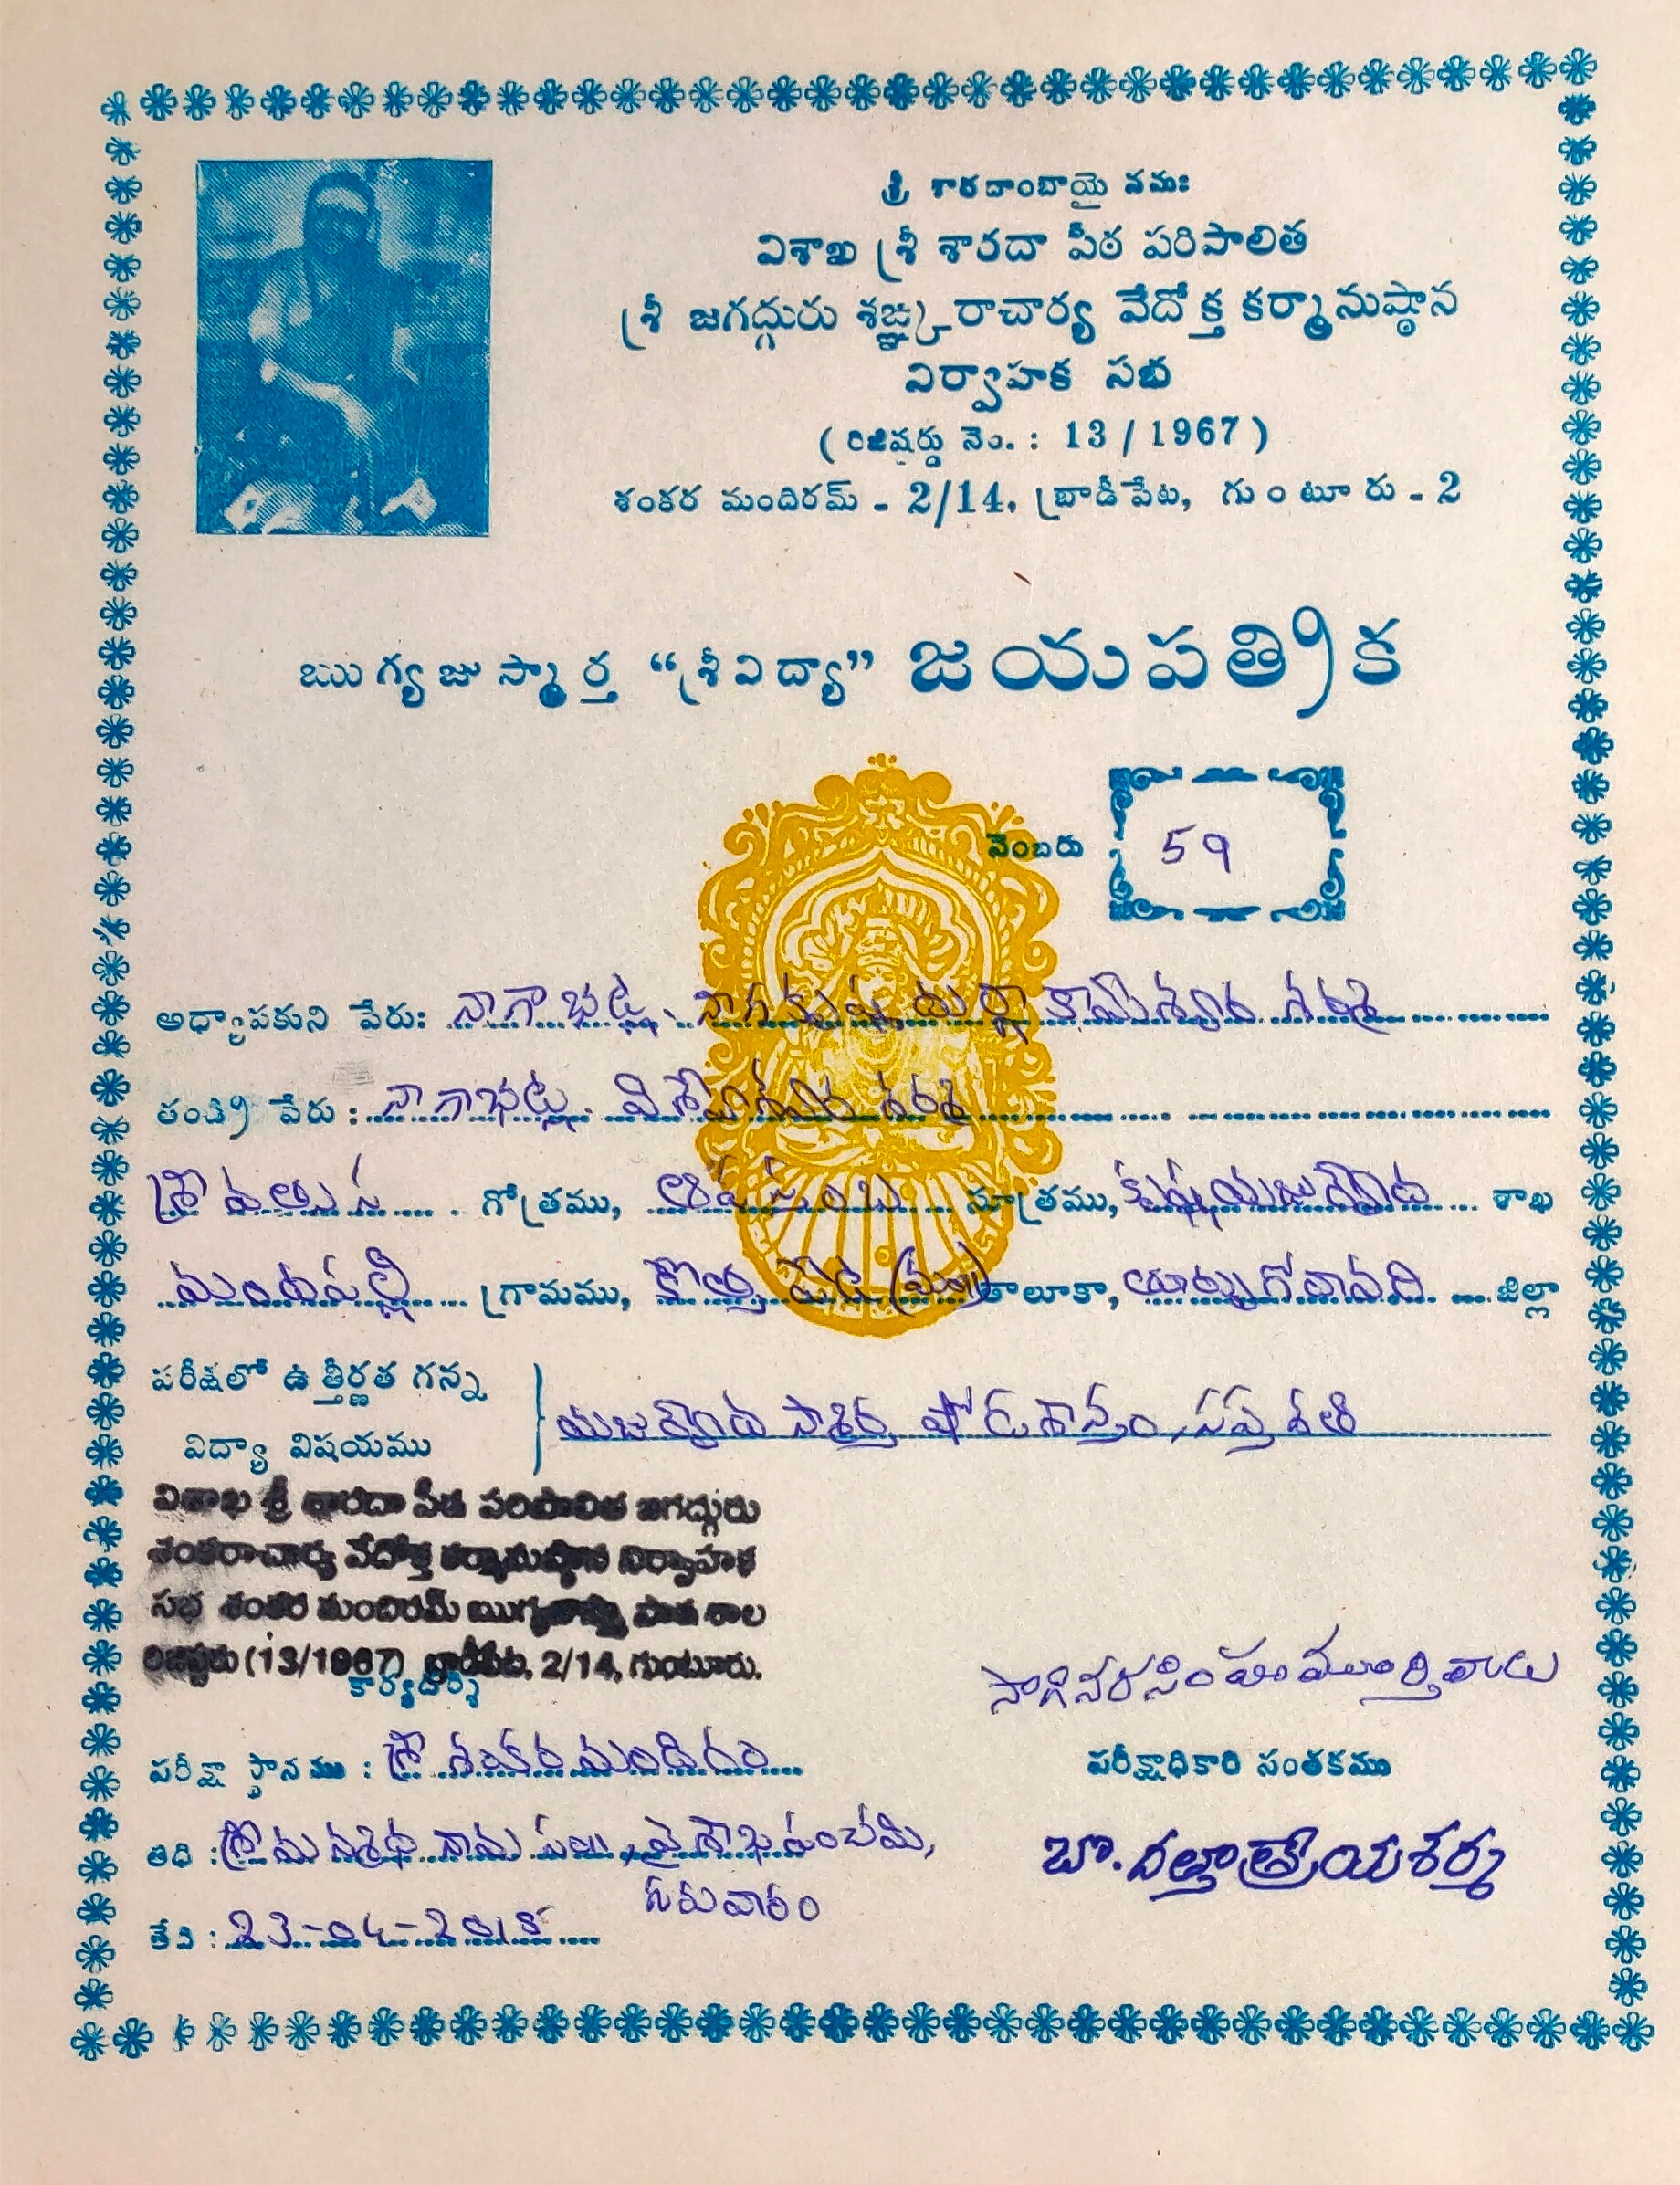 శ్రీ శారదాంబాయై నమః
విశాఖ శ్రీ శారదా పీఠ పరిపాలిత
శ్రీ జగద్గురు శఙ్కరాచార్య వేదోక్త కర్మానుష్ఠాన
నిర్వాహక సభ
( రిజిష్టర్డు నెం. : 13 / 1967 )
శంకర మందిరమ్ - 2/14, బ్రాడీపేట, గుంటూరు - 2
ఋగ్యజుస్మార్త “శ్రీవిద్యా” జయపత్రిక
నెంబరు 59
అధ్యాపకుని పేరు: నాగాభట్ల. నాగ కృష్ణ దుర్గా కామేశ్వర శర్మ
తండ్రి పేరు : నాగాభట్ల. విశ్వేశ్వర శర్మ
శ్రీవత్స గోత్రము, ఆపస్తంబ సూత్రము, కృష్ణయజుర్వేద శాఖ
మందపల్లి గ్రామము, కొత్తపేట (మం) తాలూకా, తూర్పుగోదావరి జిల్లా
పరీక్షలో ఉత్తీర్ణత గన్న
విద్యా విషయము యజుర్వేద స్మార్త షోడశాన్తం, సప్తశతి
విశాఖ శ్రీ శారదా పీఠ పరిపాలిత జగద్గురు
శంకరాచార్య వేదోక్త కర్మానుష్ఠాన నిర్వాహక
సభ శంకర మందిరమ్ పాఠశాల
రిజిష్టరు (13/1967) బ్రాడీపేట, 2/14, గుంటూరు.
కార్యదర్శి
పరీక్షా స్థానము : శ్రీ శంకర మందిరం
పరీక్షాధికారి సంతకము
తిధి : శ్రీ మన్మథ నామ సం॥, వైశాఖ పంచమి,
గురువారం
బొ. దత్తాత్రేయశర్మ
తేది : 23-04-2015